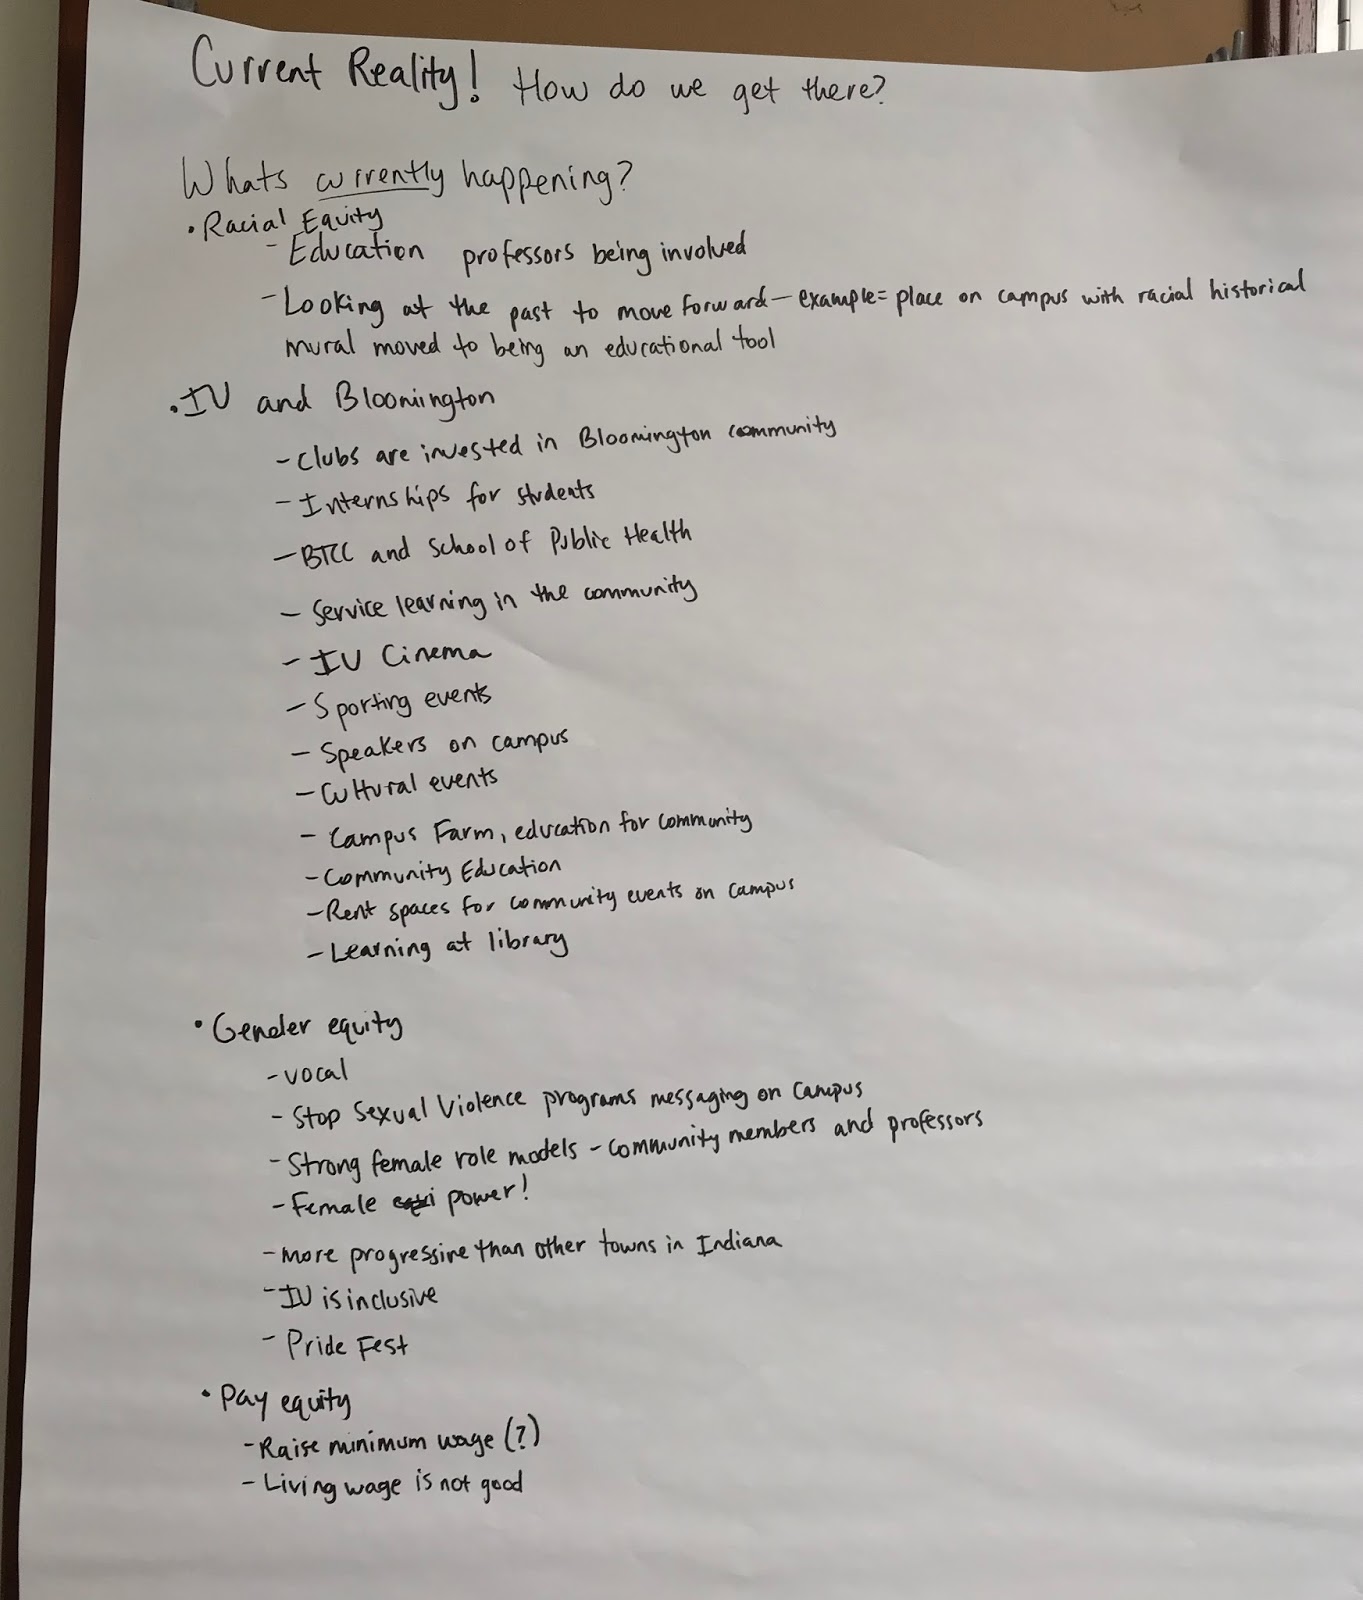 Current Reality! How do we get there?
Whats currently happening?
• Racial Equity
- Education professors being involved
- Looking at the past to move forward - example = place on campus with racial historical
mural moved to being an educational tool
• IU and Bloomington
- Clubs are invested in Bloomington community
- Internships for students
- BTCC and School of Public Health
- Service learning in the community
- IU Cinema
- Sporting events
- Speakers on campus
- Cultural events
- Campus Farm, education for community
- Community Education
- Rent spaces for community events on campus
- Learning at library
• Gender equity
- vocal
- Stop Sexual Violence programs messaging on campus
- Strong female role models - community members and professors
- Female power!
- More progressive than other towns in Indiana
- IU is inclusive
- Pride Fest
• Pay equity
- Raise minimum wage (?)
- Living wage is not good